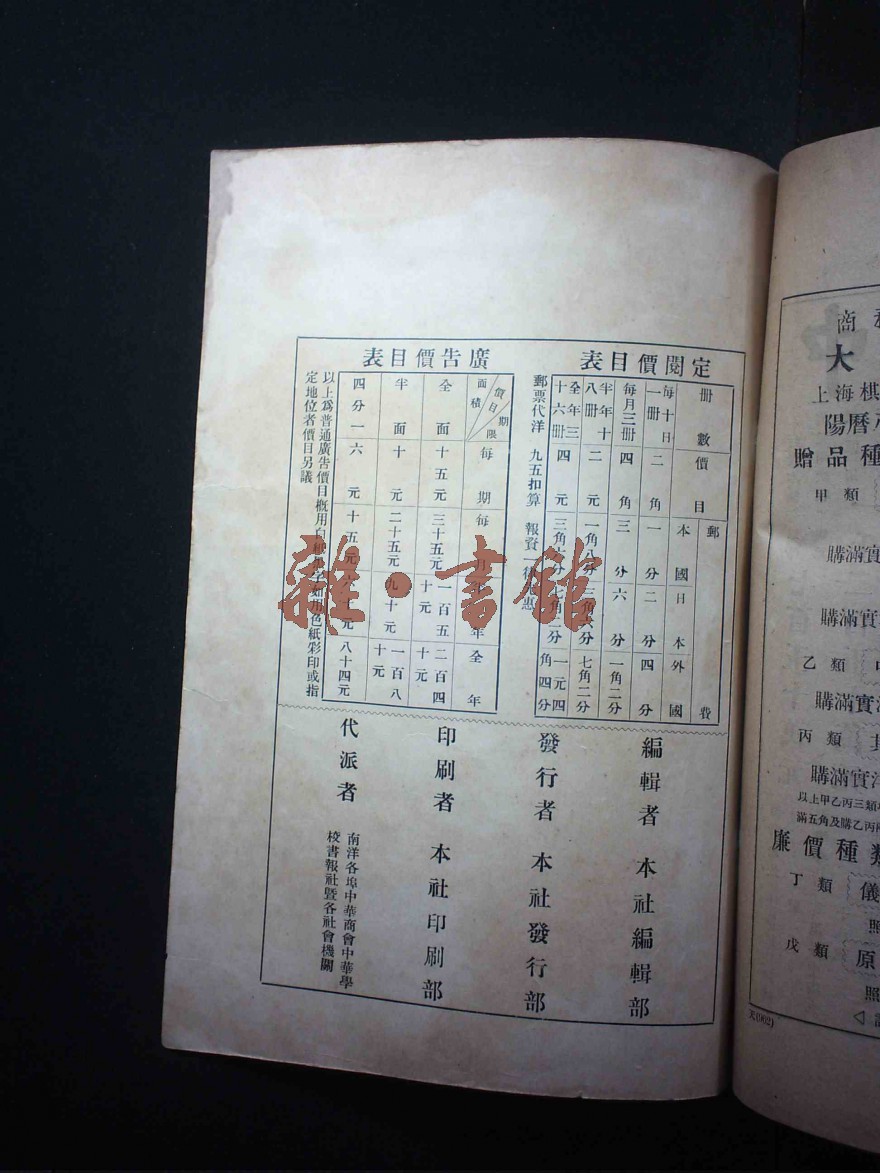 定閱價目表
冊數 價目 郵費 本國 日本 外國
每十日一冊 二角 一分 二分 四分
每月三冊 四角 三分 六分 一角二分
半年十八冊 二元 一角八分 三角六分 七角二分
全年三十六冊 四元 三角六分 七角二分 一元四角四分
郵票代洋 九五扣算 報資一律
惠
廣告價目表
面積 價目 期限 每期 每月 半年 全年
全面 十五元 三十五元 一百五十元 二百四十元
半面 十元 二十五元 九十元 一百八十元
四分一 六元 十五元 八十四元
以上爲普通廣告價目概用白紙黑字如用色紙彩印或指
定地位者價目另議
編輯者 本社編輯部
發行者 本社發行部
印刷者 本社印刷部
代派者 南洋各埠中華商會中華學
校書報社暨各社會機關
雜·書館
商
大
上海棋
陽曆
贈品種
甲類
購滿實
購滿實
乙類
購滿實
丙類 其
購滿實洋
以上甲乙丙三類
滿五角及購乙丙
廉價種類
丁類 儀
照
戊類 原
照